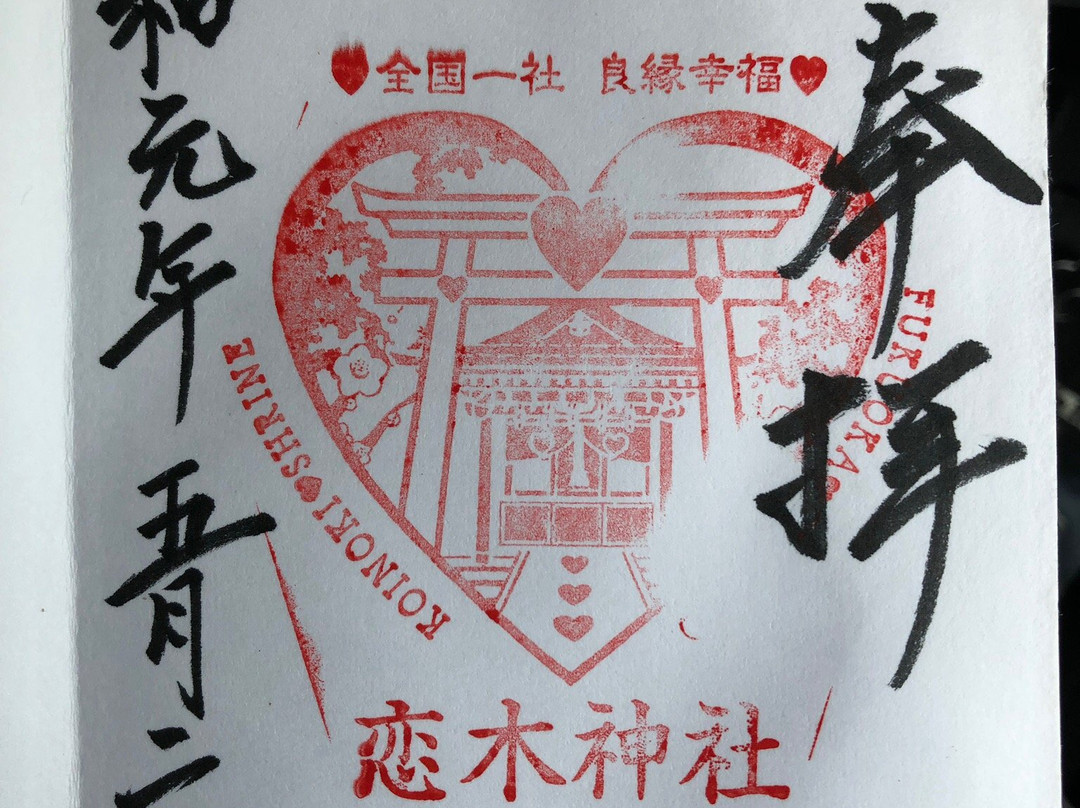 奉拝
♥全国一社 良縁幸福♥
KOINOKI♥SHRINE
FUKUOKA
恋木神社
和元年 五月二